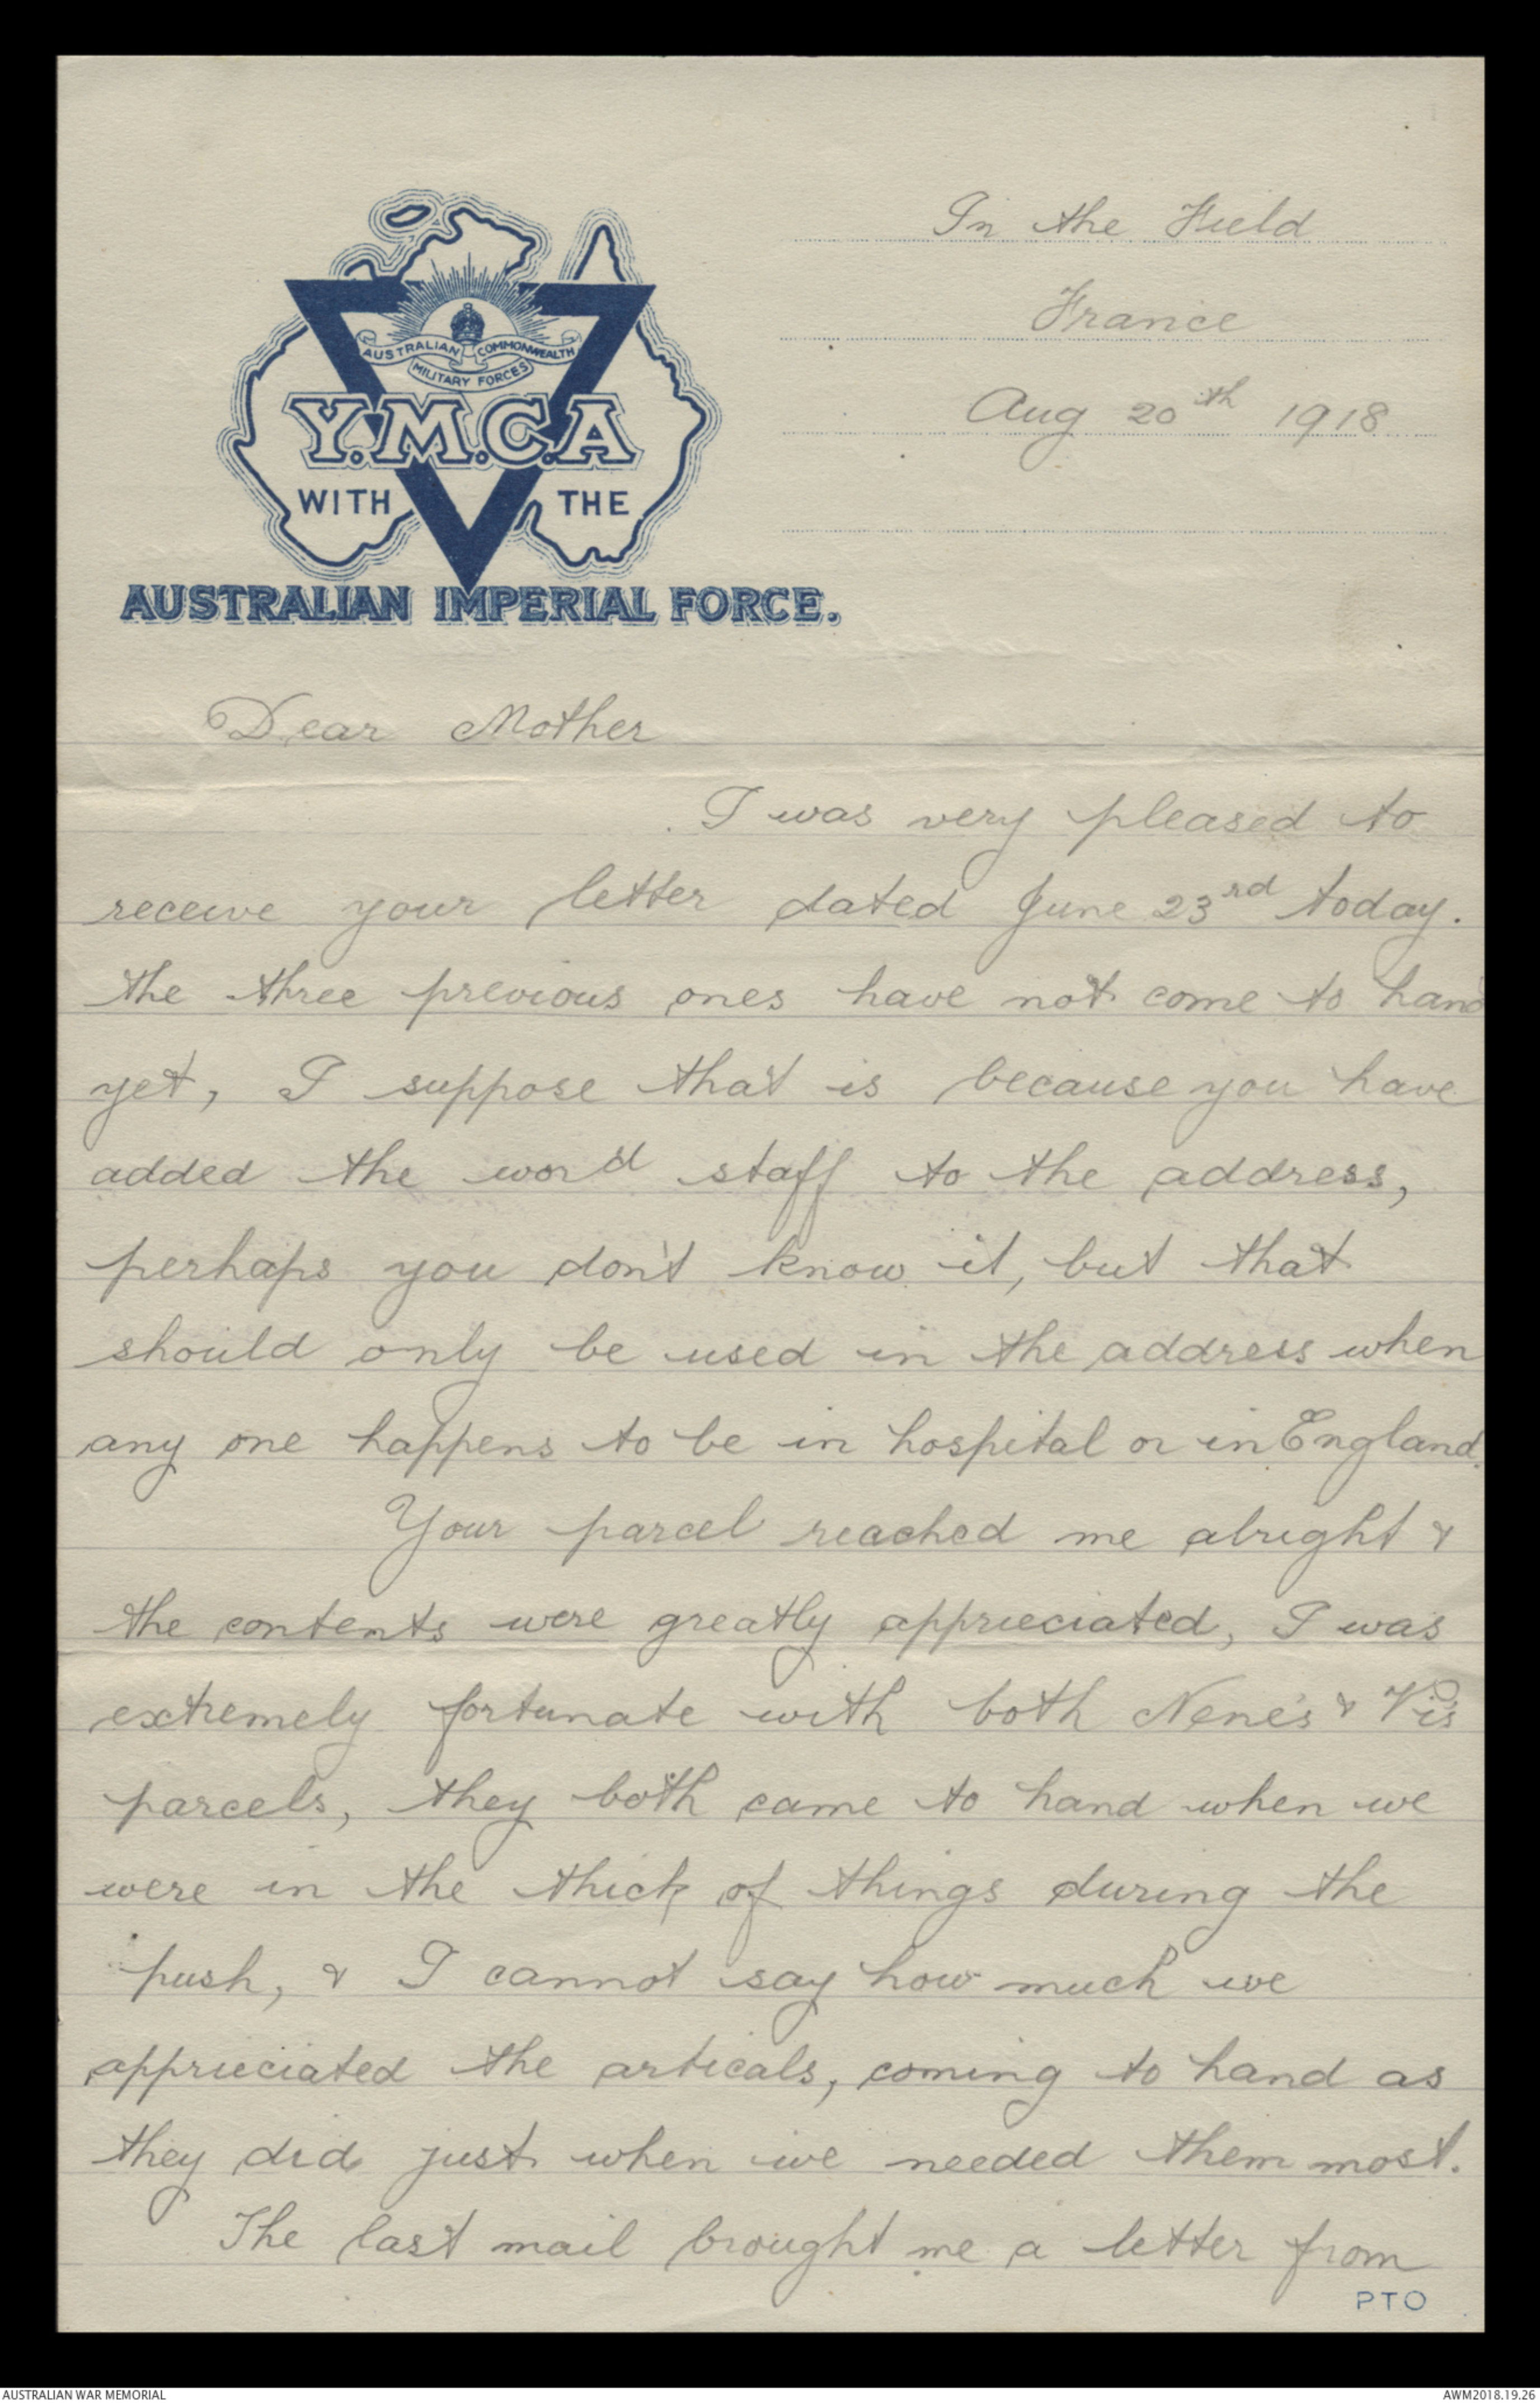 In the Field
France
Aug 20th 1918
AUSTRALIAN COMMONWEALTH
MILITARY FORCES
Y.M.C.A
WITH THE
AUSTRALIAN IMPERIAL FORCE.
Dear Mother
I was very pleased to
receive your letter dated June 23rd today.
the three previous ones have not come to hand
yet, I suppose that is because you have
added the word staff to the address,
perhaps you don't know it, but that
should only be used in the address when
any one happens to be in hospital or in England.
Your parcel reached me alright &
the contents were greatly apprieciated, I was
extremely fortunate with both Nene's & Vi's
parcels, they both came to hand when we
were in the thick of things during the
push, & I cannot say how much we
apprieciated the articals, coming to hand as
they did just when we needed them most.
The last mail brought me a letter from
PTO
AUSTRALIAN WAR MEMORIAL
AWM2018.19.26